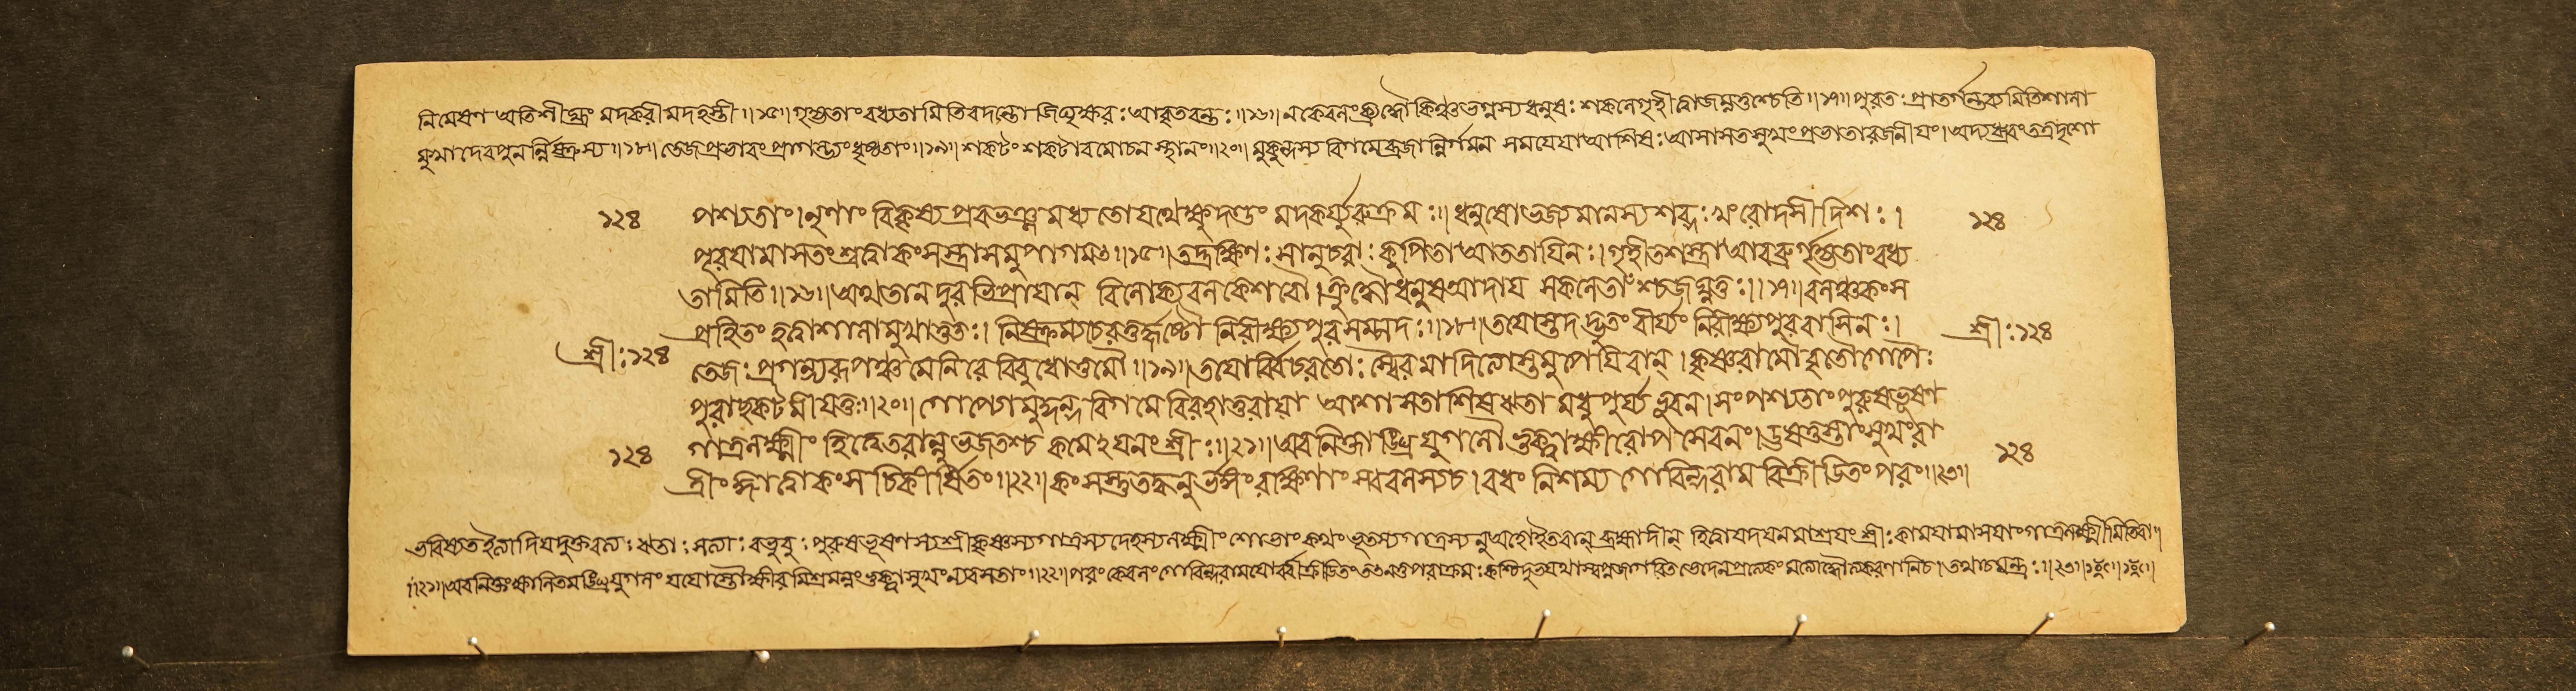 নিমেষেণ অতিশীঘ্রং মদকরী মদহস্তী॥১৫॥গৃহ্যতাং বধ্যতামিতিবদন্তো জিঘৃক্ষব়ঃ আবৃতবন্তঃ॥১৬॥নকেবলংক্রুদ্ধৌকিঞ্চভগ্নস্যধনুষঃ শকলেগৃহীত্বাজঘ্নতুশ্চেতি॥১৭॥পুরতঃ প্রাতর্গন্তব্যমিতিশালা
মুখাদেবপুনর্নিষ্ক্রম্য॥১৮॥তেজপ্রভাবংপ্রাগল্ভ্যংধৃষ্টতাং॥১৯॥শকটং শকটাবমোচন স্থানং॥২০॥মুকুন্দস্যবিগমেব্রজান্নির্গমন সময়েযাআশিষঃআসাসতসুখংপ্রভাতারজনীয়ং।অদ্যধ্রুবংতত্রদৃশো
১২৪ পশ্যতাং।নৃণাং বিকৃষ্যপ্রবভঞ্জমধ্যতোযথেক্ষুদণ্ডং মদকর্য্যুরুক্রমঃ॥ধনুষোভজ্যমানস্যশব্দঃখংরোদসীদিশঃ। ১২৪
পূরয়ামাসতংশ্রুত্বাকংসস্ত্রাসমুপাগমৎ॥১৫॥তদ্রক্ষিণঃসানুচরাঃকুপিতাআততায়িনঃ।গৃহীতশস্ত্রাআবব্রুর্গৃহ্যতাংবধ্য
তামিতি॥১৬॥অথতানদুরভিপ্রায়ান্ বিলোক্যবলকেশবৌ।ক্রুদ্ধৌধনুষআদায় সকলেতাঁশ্চজঘ্নতুঃ॥১৭॥বলঞ্চকংস
প্রহিতং হত্বাশালামুখাত্ততঃ। নিষ্ক্রম্যচেরতুর্হৃষ্টৌ নিরীক্ষ্যপুরসম্পদঃ॥১৮॥তয়োস্তদদ্ভুতংবীর্য্যং নিরীক্ষ্যপুরবাসিনঃ।
শ্রীঃ১২৪ শ্রীঃ১২৪
তেজঃপ্রাগল্ভ্যংরূপঞ্চমেনিরেবিবুধোত্তমৌ॥১৯॥তয়োর্বিচরতোঃ স্বৈরমাদিত্যোস্তমুপেয়িবান্।কৃষ্ণরামৌবৃতৌগোপৈঃ
পুরাছকটমীয়তুঃ॥২০॥গোপ্যোমুকুন্দ বিগমে বিরহাতুরায়া আশা সতাশিষঋতা মধুপুর্য্যভূবন।সংপশ্যতাংপুরুষভূষণ
১২৪ গাত্রলক্ষ্মীং হিত্বেতরান্নুভজতশ্চ কমেঽয়নংশ্রীঃ॥২১॥অবনিক্তাঙ্ঘ্রিযুগলৌভুক্ত্বাক্ষীরোপসেবনং।ঊষতুস্তাংসুখংরা ১২৪
ত্রীংজ্ঞাত্বাকংসচিকীর্ষিতং॥২২॥কংসস্তুতদ্ধনুর্ভঙ্গংরক্ষিণাংস্ববলস্যচ।বধং নিশম্য গোবিন্দরামবিক্রীডিতংপরং॥২৩॥
ভবিষ্যতইত্যাদিযদুক্তবত্যঃঋতাঃসত্যাঃবভূবুঃপুরুষভূষণস্যশ্রীকৃষ্ণস্যগাত্রস্যদেহস্যলক্ষ্মীং শোভাংকথংভূতস্যগাত্রস্যনুঅহোইতবান্ ব্রহ্মাদীন্ হিত্বাযদয়নমাশ্রয়ংশ্রীঃকাময়ামাসযাংগাত্রলক্ষ্মীমিতিবা॥
॥২১॥অবনিক্তংক্ষালিতমঙ্ঘ্রিযুগলং যয়োস্তৌক্ষীরমিশ্রমন্নংভুক্ত্বাসুখংন্যবসতাং॥২২॥পরংকেবলংগোবিন্দরাময়োর্বিক্রীডিতং